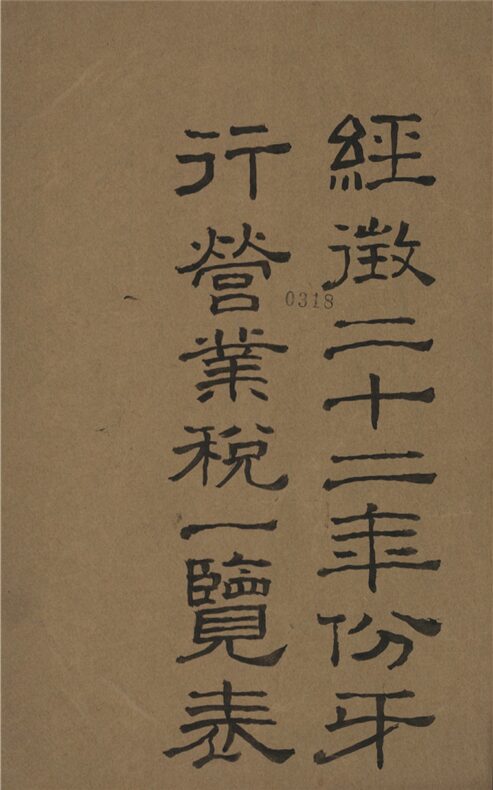 經徵二十二年份牙
行營業税一覽表
0318